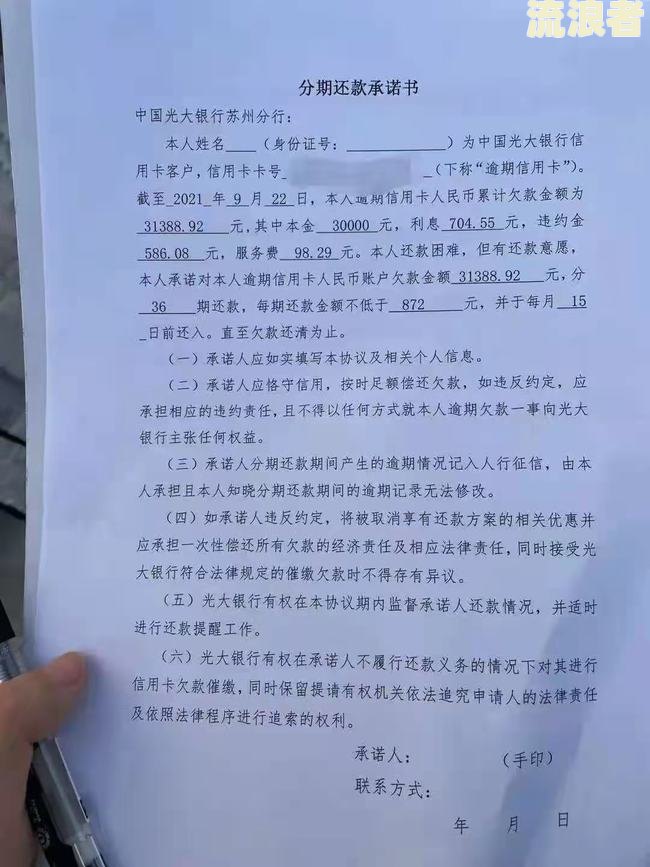 流浪者
分期还款承诺书
中国光大银行苏州分行：
本人姓名____（身份证号：__________）为中国光大银行信
用卡客户，信用卡卡号_ _（下称“逾期信用卡”）。
截至 2021 年 9 月 22 日，本人逾期信用卡人民币累计欠款金额为
31388.92 元，其中本金 30000 元，利息 704.55 元，违约金
586.08 元，服务费 98.29 元。本人还款困难，但有还款意愿，
本人承诺对本人逾期信用卡人民币账户欠款金额 31388.92 元，分
36 期还款，每期还款金额不低于 872 元，并于每月 15
_日前还入。直至欠款还清为止。
（一）承诺人应如实填写本协议及相关个人信息。
（二）承诺人应恪守信用，按时足额偿还欠款，如违反约定，应
承担相应的违约责任，且不得以任何方式就本人逾期欠款一事向光大
银行主张任何权益。
（三）承诺人分期还款期间产生的逾期情况记入人行征信，由本
人承担且本人知晓分期还款期间的逾期记录无法修改。
（四）如承诺人违反约定，将被取消享有还款方案的相关优惠并
应承担一次性偿还所有欠款的经济责任及相应法律责任，同时接受光
大银行符合法律规定的催缴欠款时不得存有异议。
（五）光大银行有权在本协议期内监督承诺人还款情况，并适时
进行还款提醒工作。
（六）光大银行有权在承诺人不履行还款义务的情况下对其进行
信用卡欠款催缴，同时保留提请有权机关依法追究申请人的法律责任
及依照法律程序进行追索的权利。
承诺人： （手印）
联系方式：
年 月 日